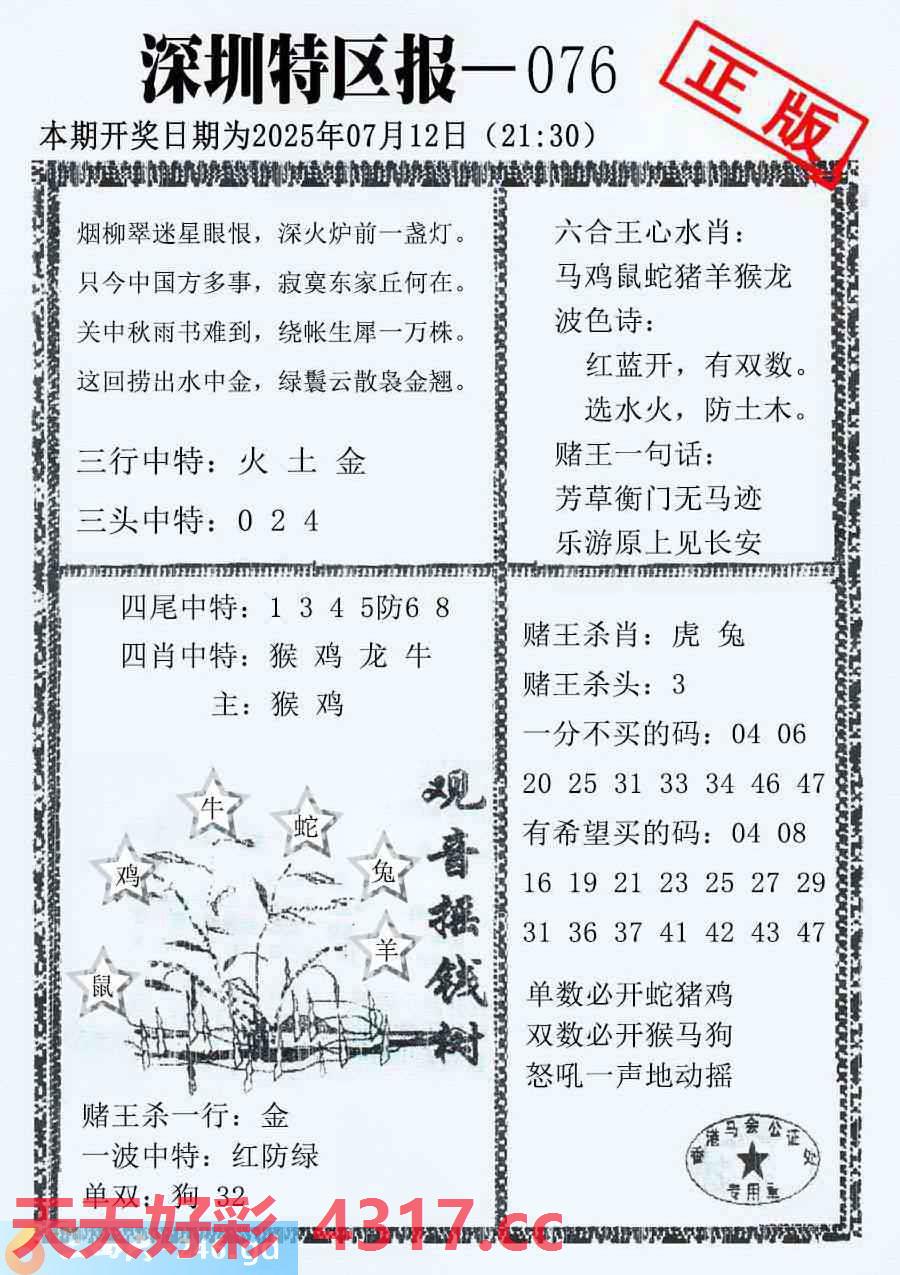 深圳特区报—076
正版
本期开奖日期为2025年07月12日（21:30）
烟柳翠迷星眼恨，深火炉前一盏灯。
只今中国方多事，寂寞东家丘何在。
关中秋雨书难到，绕帐生犀一万株。
这回捞出水中金，绿鬟云散袅金翘。
三行中特：火 土 金
三头中特：0 2 4
六合王心水肖：
马鸡鼠蛇猪羊猴龙
波色诗：
红蓝开，有双数。
选水火，防土木。
赌王一句话：
芳草衡门无马迹
乐游原上见长安
四尾中特：1 3 4 5防6 8
四肖中特：猴 鸡 龙 牛
主：猴 鸡
观音摇钱树
牛
蛇
鸡
兔
羊
鼠
赌王杀一行：金
一波中特：红防绿
单双：狗 32
赌王杀肖：虎 兔
赌王杀头：3
一分不买的码：04 06
20 25 31 33 34 46 47
有希望买的码：04 08
16 19 21 23 25 27 29
31 36 37 41 42 43 47
单数必开蛇猪鸡
双数必开猴马狗
怒吼一声地动摇
香港马会公证处
专用章
天天好彩 4317.cc